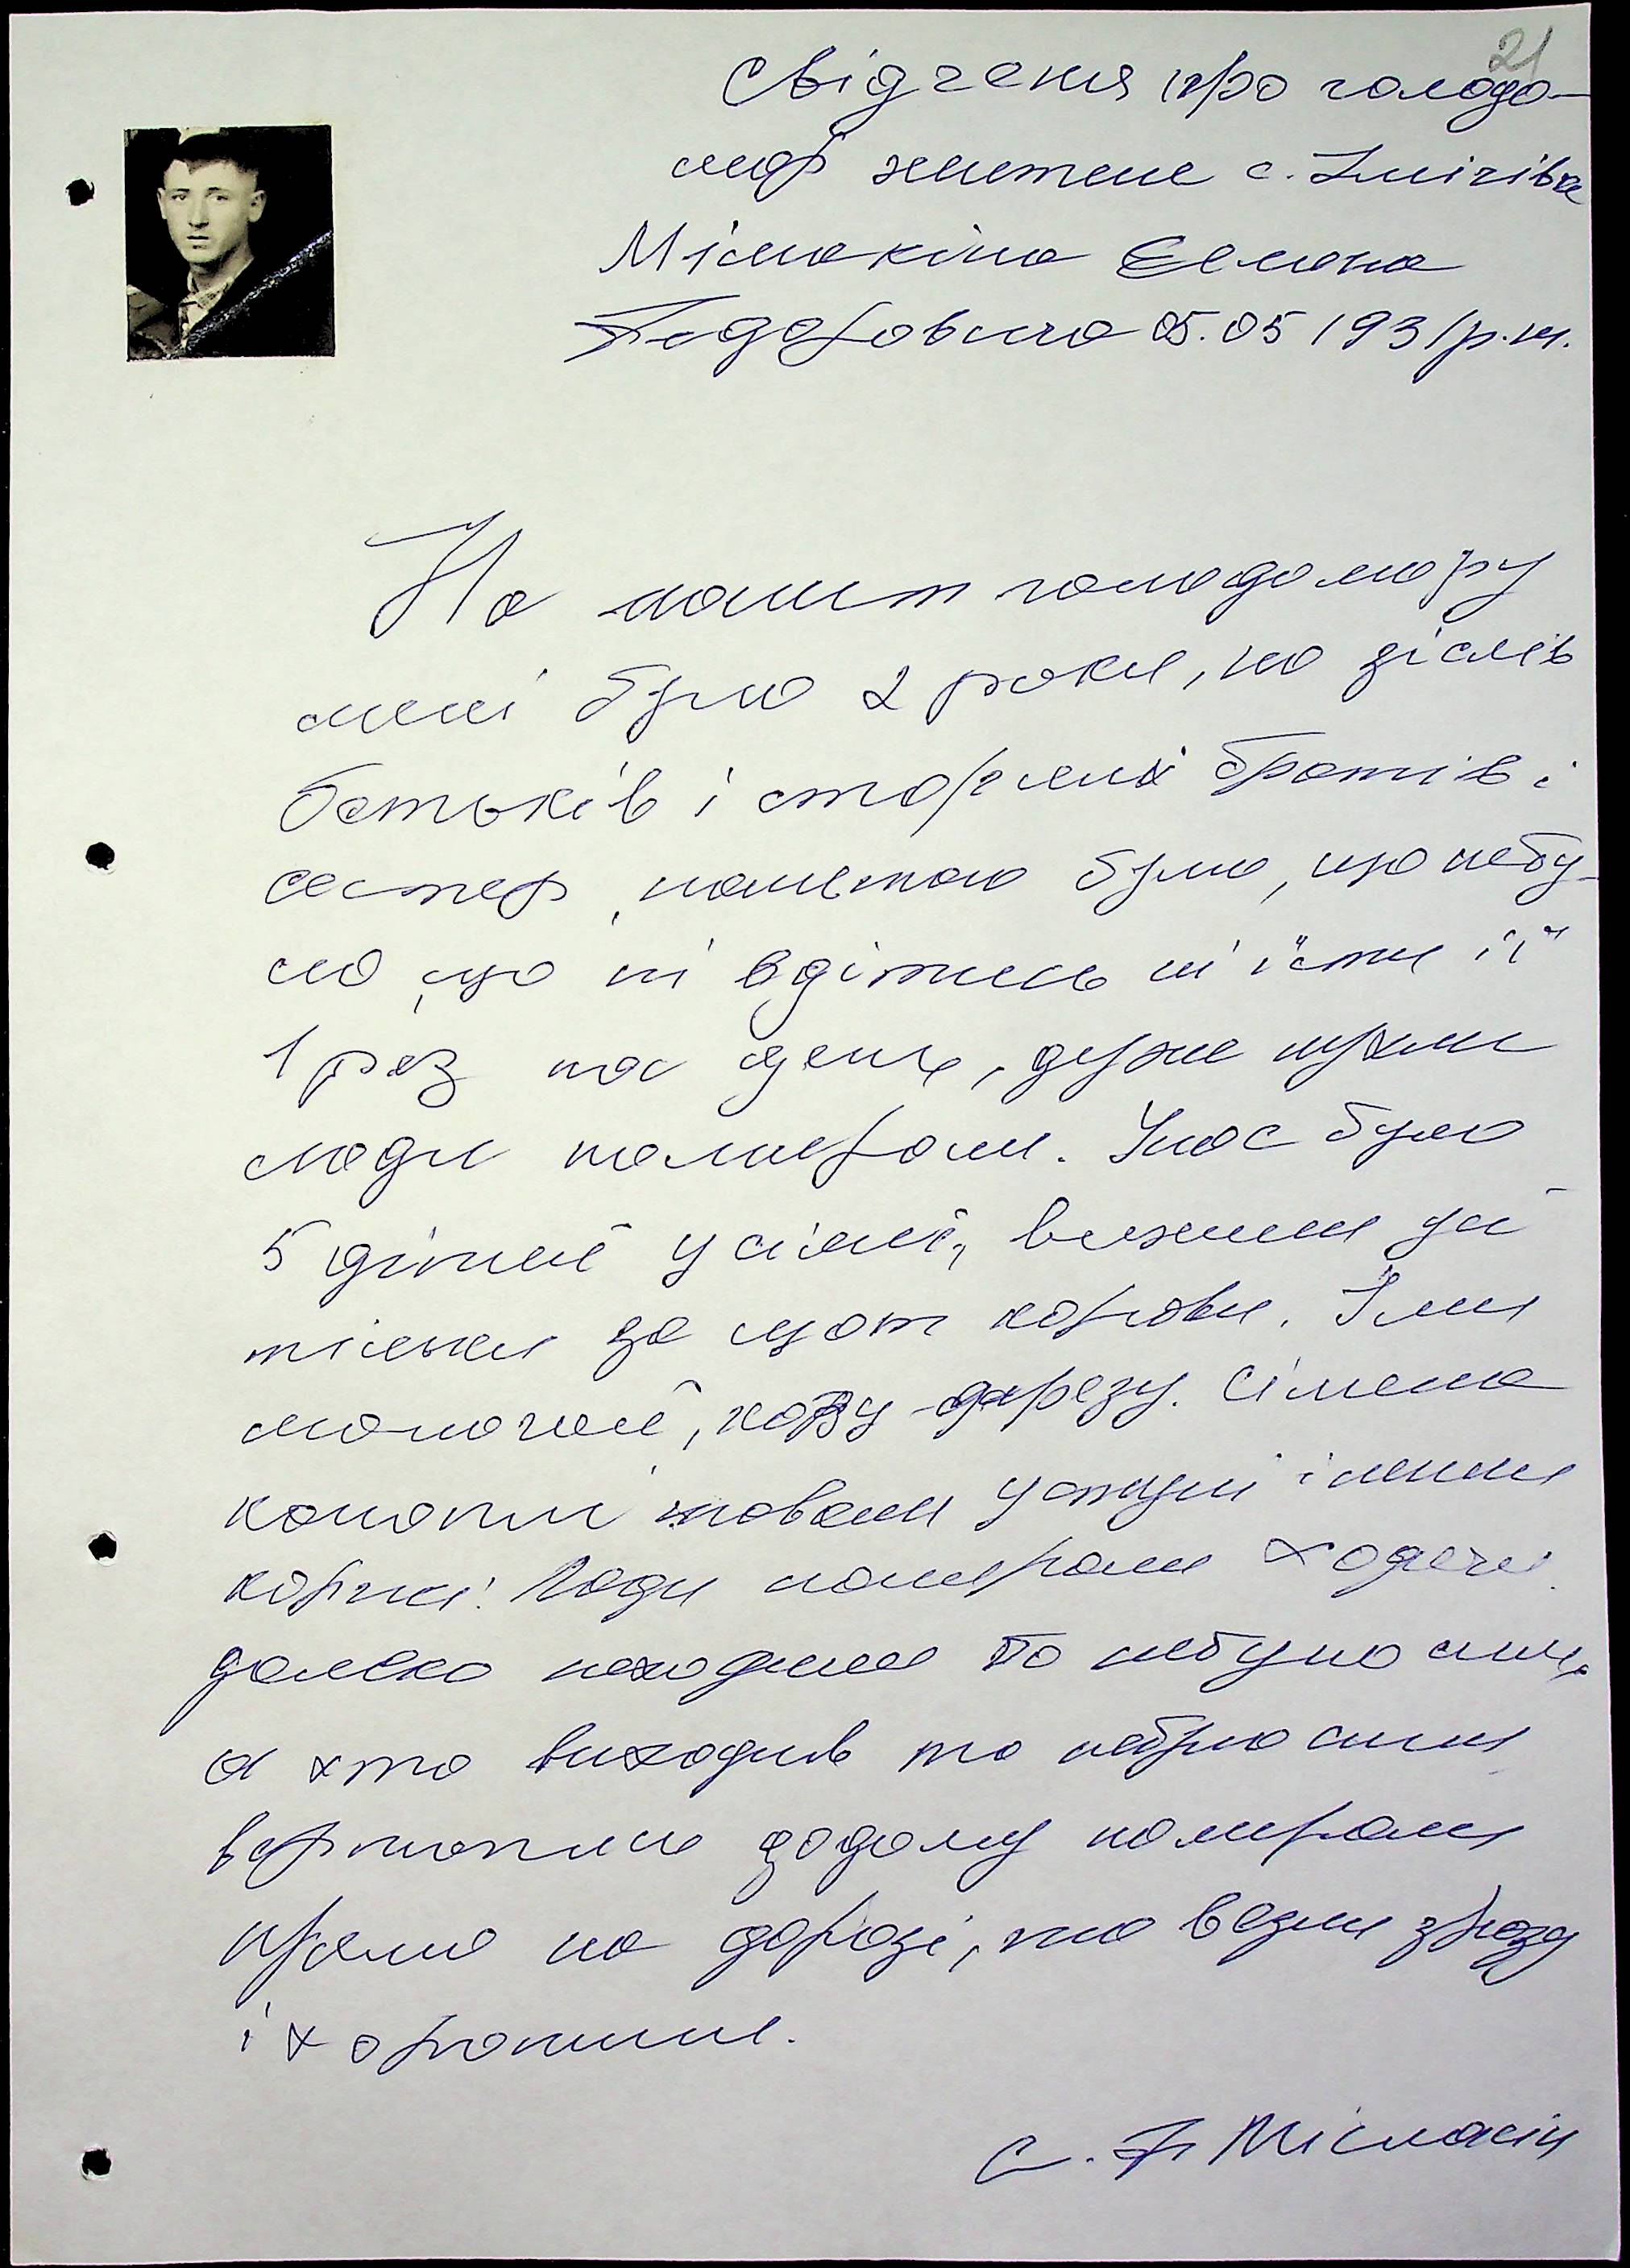 21
Свідчення про голодо-
мор жителя с. Зміївка
Міснакіна Семена
Федоровича 05.05 1931 р.н.
На момент голодомору
мені було 2 роки, по слів
батьків і старших братів і
сестер, пам'ятаю було, що небу-
ло що ні вдітись ні їсти її
1 раз на день, дуже пухли
люди помирали. Унас було
5 дітей у сім'ї, вижили усі
тільки за щот корови. Їли
молочай, козу-дерезу. Сімена
коноплі товкли у ступі і пекли
коржі. Люди помирали ходячи
далеко неходили бо небуло сили,
а хто виходив то небуло сили
вертатись додому помирали
прямо на дорозі, по возили зразу
і хоронили.
С. Ф. Міснакін